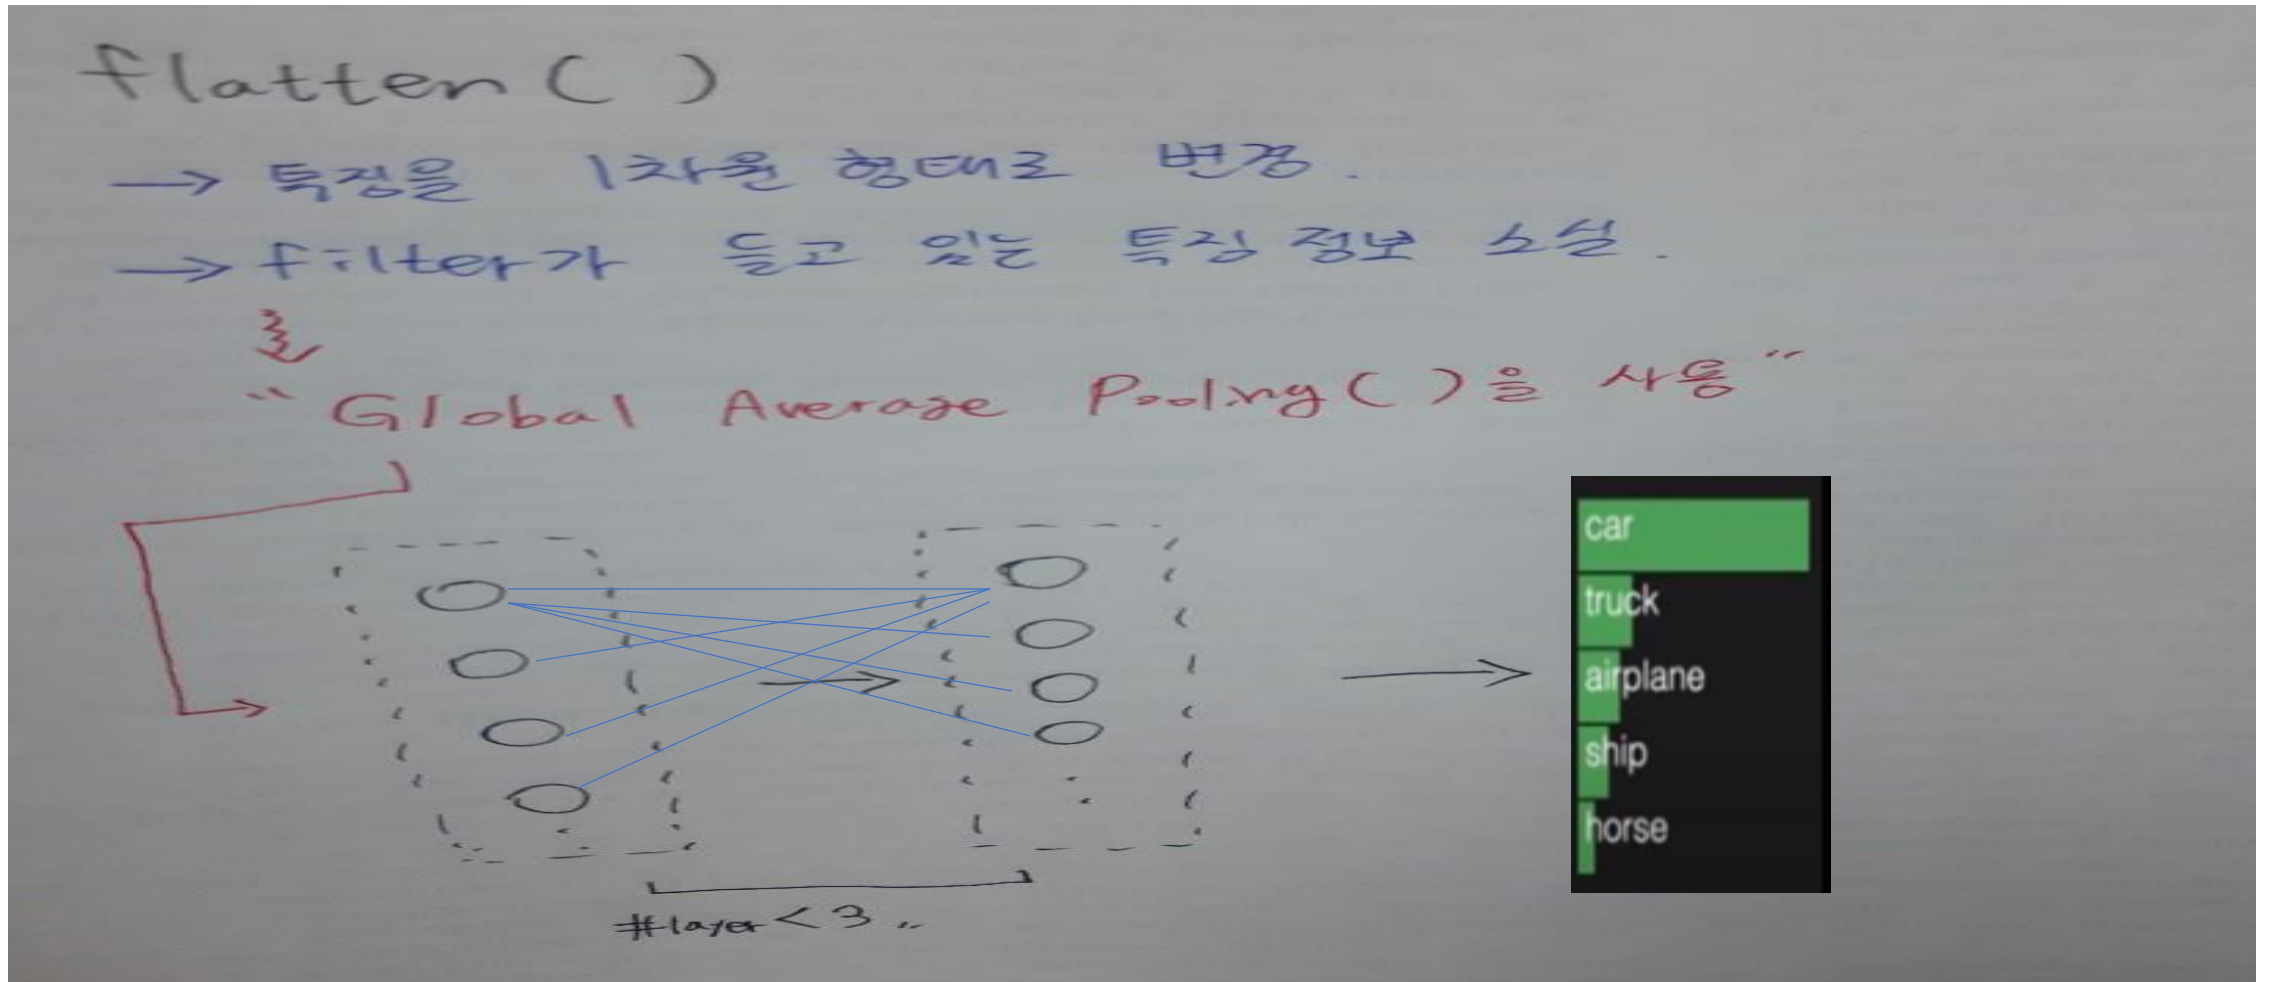 flatten( )
→ 특징을 1차원 형태로 변경.
→ filter가 들고 있는 특징 정보 소실.
"Global Average Pooling( )을 사용"
car
truck
airplane
ship
horse
#layer < 3